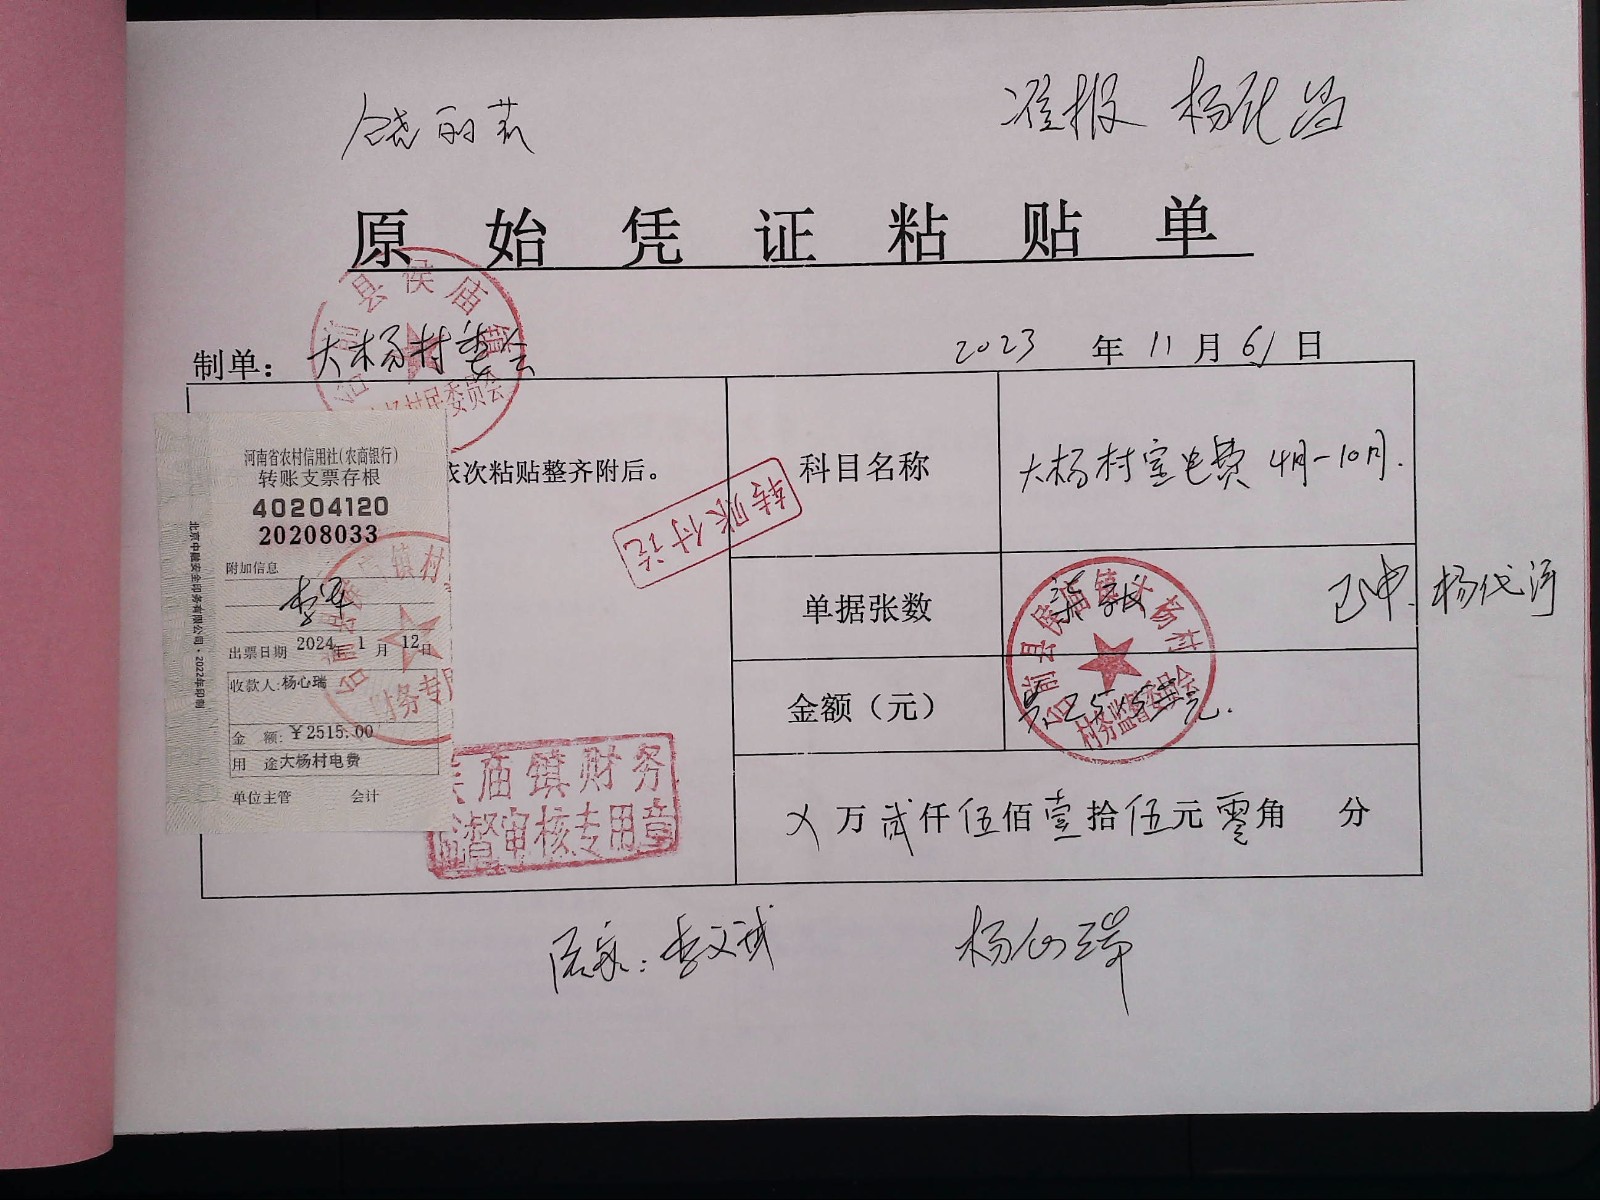 饶丽莉
准报 杨
原始凭证粘贴单
制单：大杨村委会
2023年11月6日
台前县侯庙镇
大杨村民委员会
依次粘贴整齐附后。
科目名称
大杨村室电费 4月-10月.
转账付讫
单据张数
柒张
已审.杨代河
金额（元）
共2515元.
台前县侯庙镇大杨村
村务监督委员会
乂万贰仟伍佰壹拾伍元零角 分
河南省农村信用社(农商银行)
转账支票存根
40204120
20208033
附加信息
李军
出票日期 2024年1月12日
收款人:杨心瑞
金 额:￥2515.00
用 途大杨村电费
单位主管 会计
北京中融安全印务有限公司·2022年印制
财务专用
侯庙镇财务
监督审核专用章
李文斌
杨心瑞